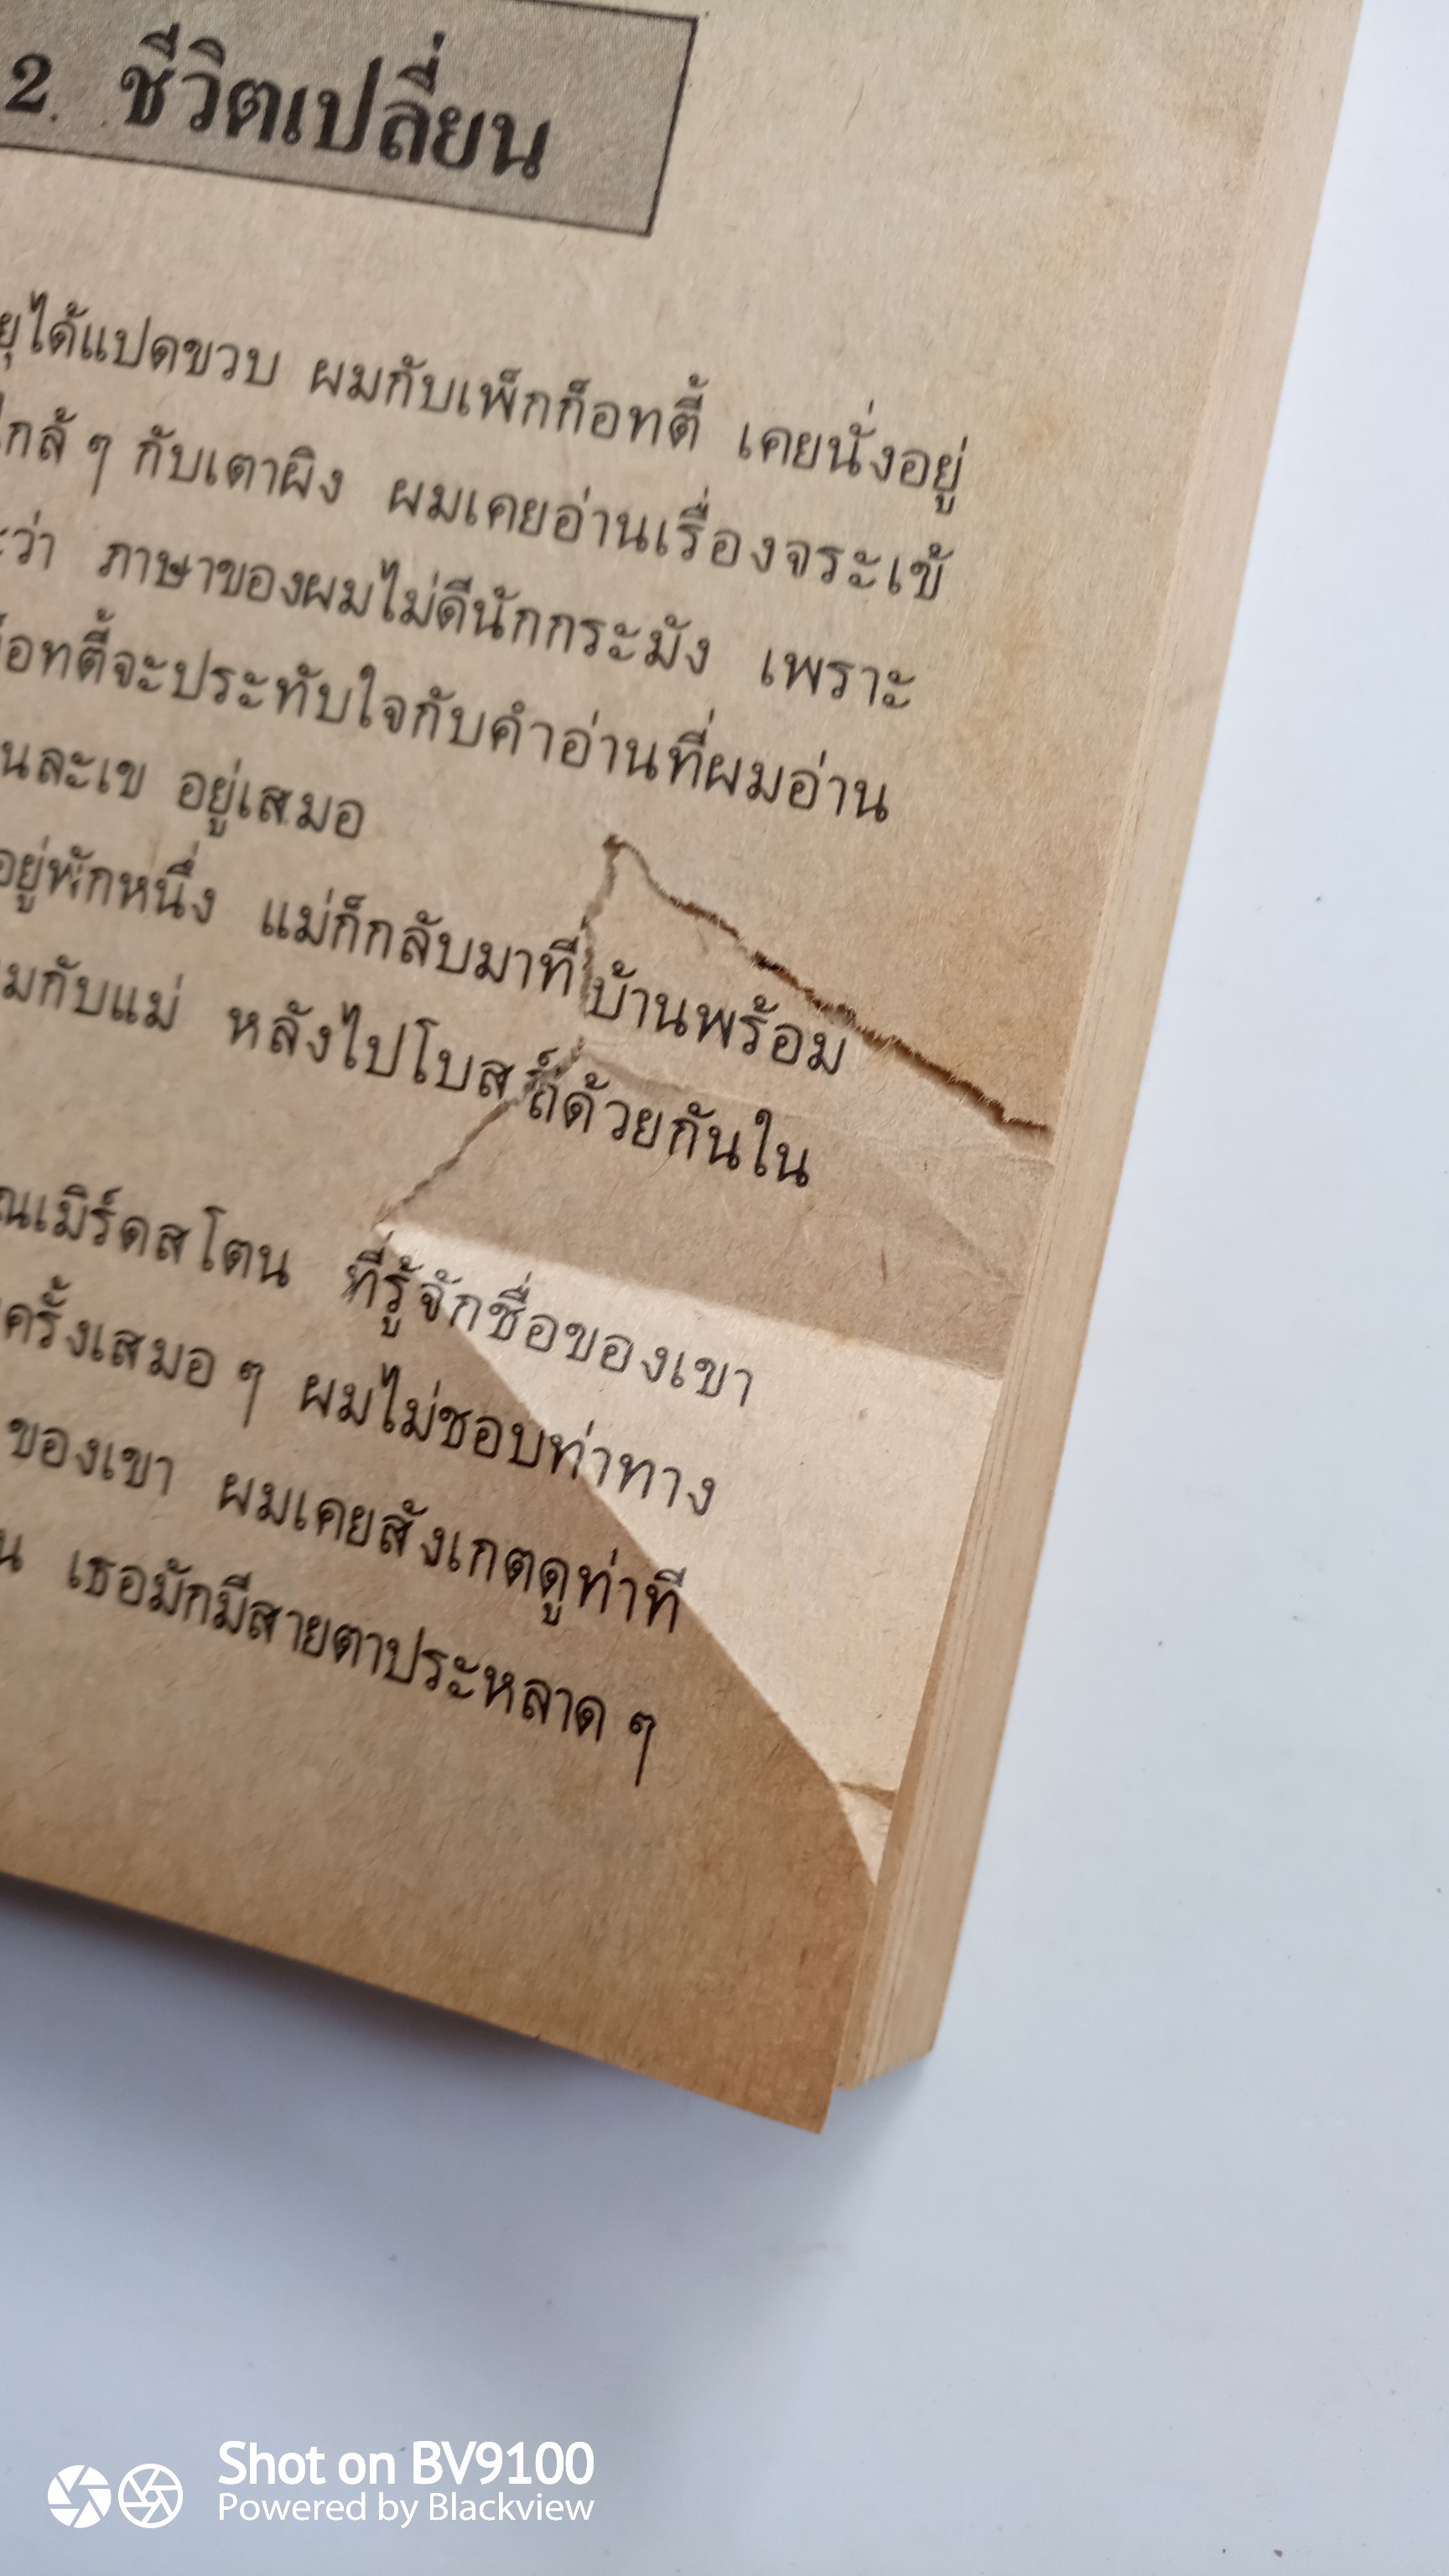 2. ชีวิตเปลี่ยน
ได้แปดขวบ ผมกับเพ็กก็อทตี้ เคยนั่งอยู่
ใกล้ ๆ กับเตาผิง ผมเคยอ่านเรื่องจระเข้
ว่า ภาษาของผมไม่ดีนักกระมัง เพราะ
อทตี้จะประทับใจกับคำอ่านที่ผมอ่าน
นละเข อยู่เสมอ
อยู่พักหนึ่ง แม่ก็กลับมาที่บ้านพร้อม
มกับแม่ หลังไปโบสถ์ด้วยกันใน
ณเมิร์ดสโตน ที่รู้จักชื่อของเขา
ครั้งเสมอ ๆ ผมไม่ชอบท่าทาง
ของเขา ผมเคยสังเกตดูท่าที
น เธอมักมีสายตาประหลาด ๆ
Shot on BV9100
Powered by Blackview